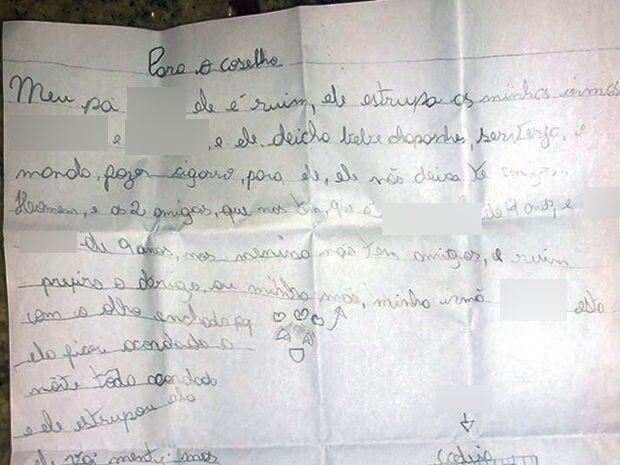 Para o coselho
Meu pa ele é ruim, ele estrupa as minhas irmas
e , e ele deicha bebe champanhe, serverja, e
manda, fazer sigarro, para ele, ele não deixa te amigos.
Homem, e as 2 amigas, que nos tem, que é de 9 anos, e
de 9 anos, nos não tem amigos, é ruim
prefiro o abrigo, ou minha mãe, minha irmã esta
com o olho enchado pq
ela ficou acordada a
noite toda acordada
e ele estrupou ela
ele vai menti mas